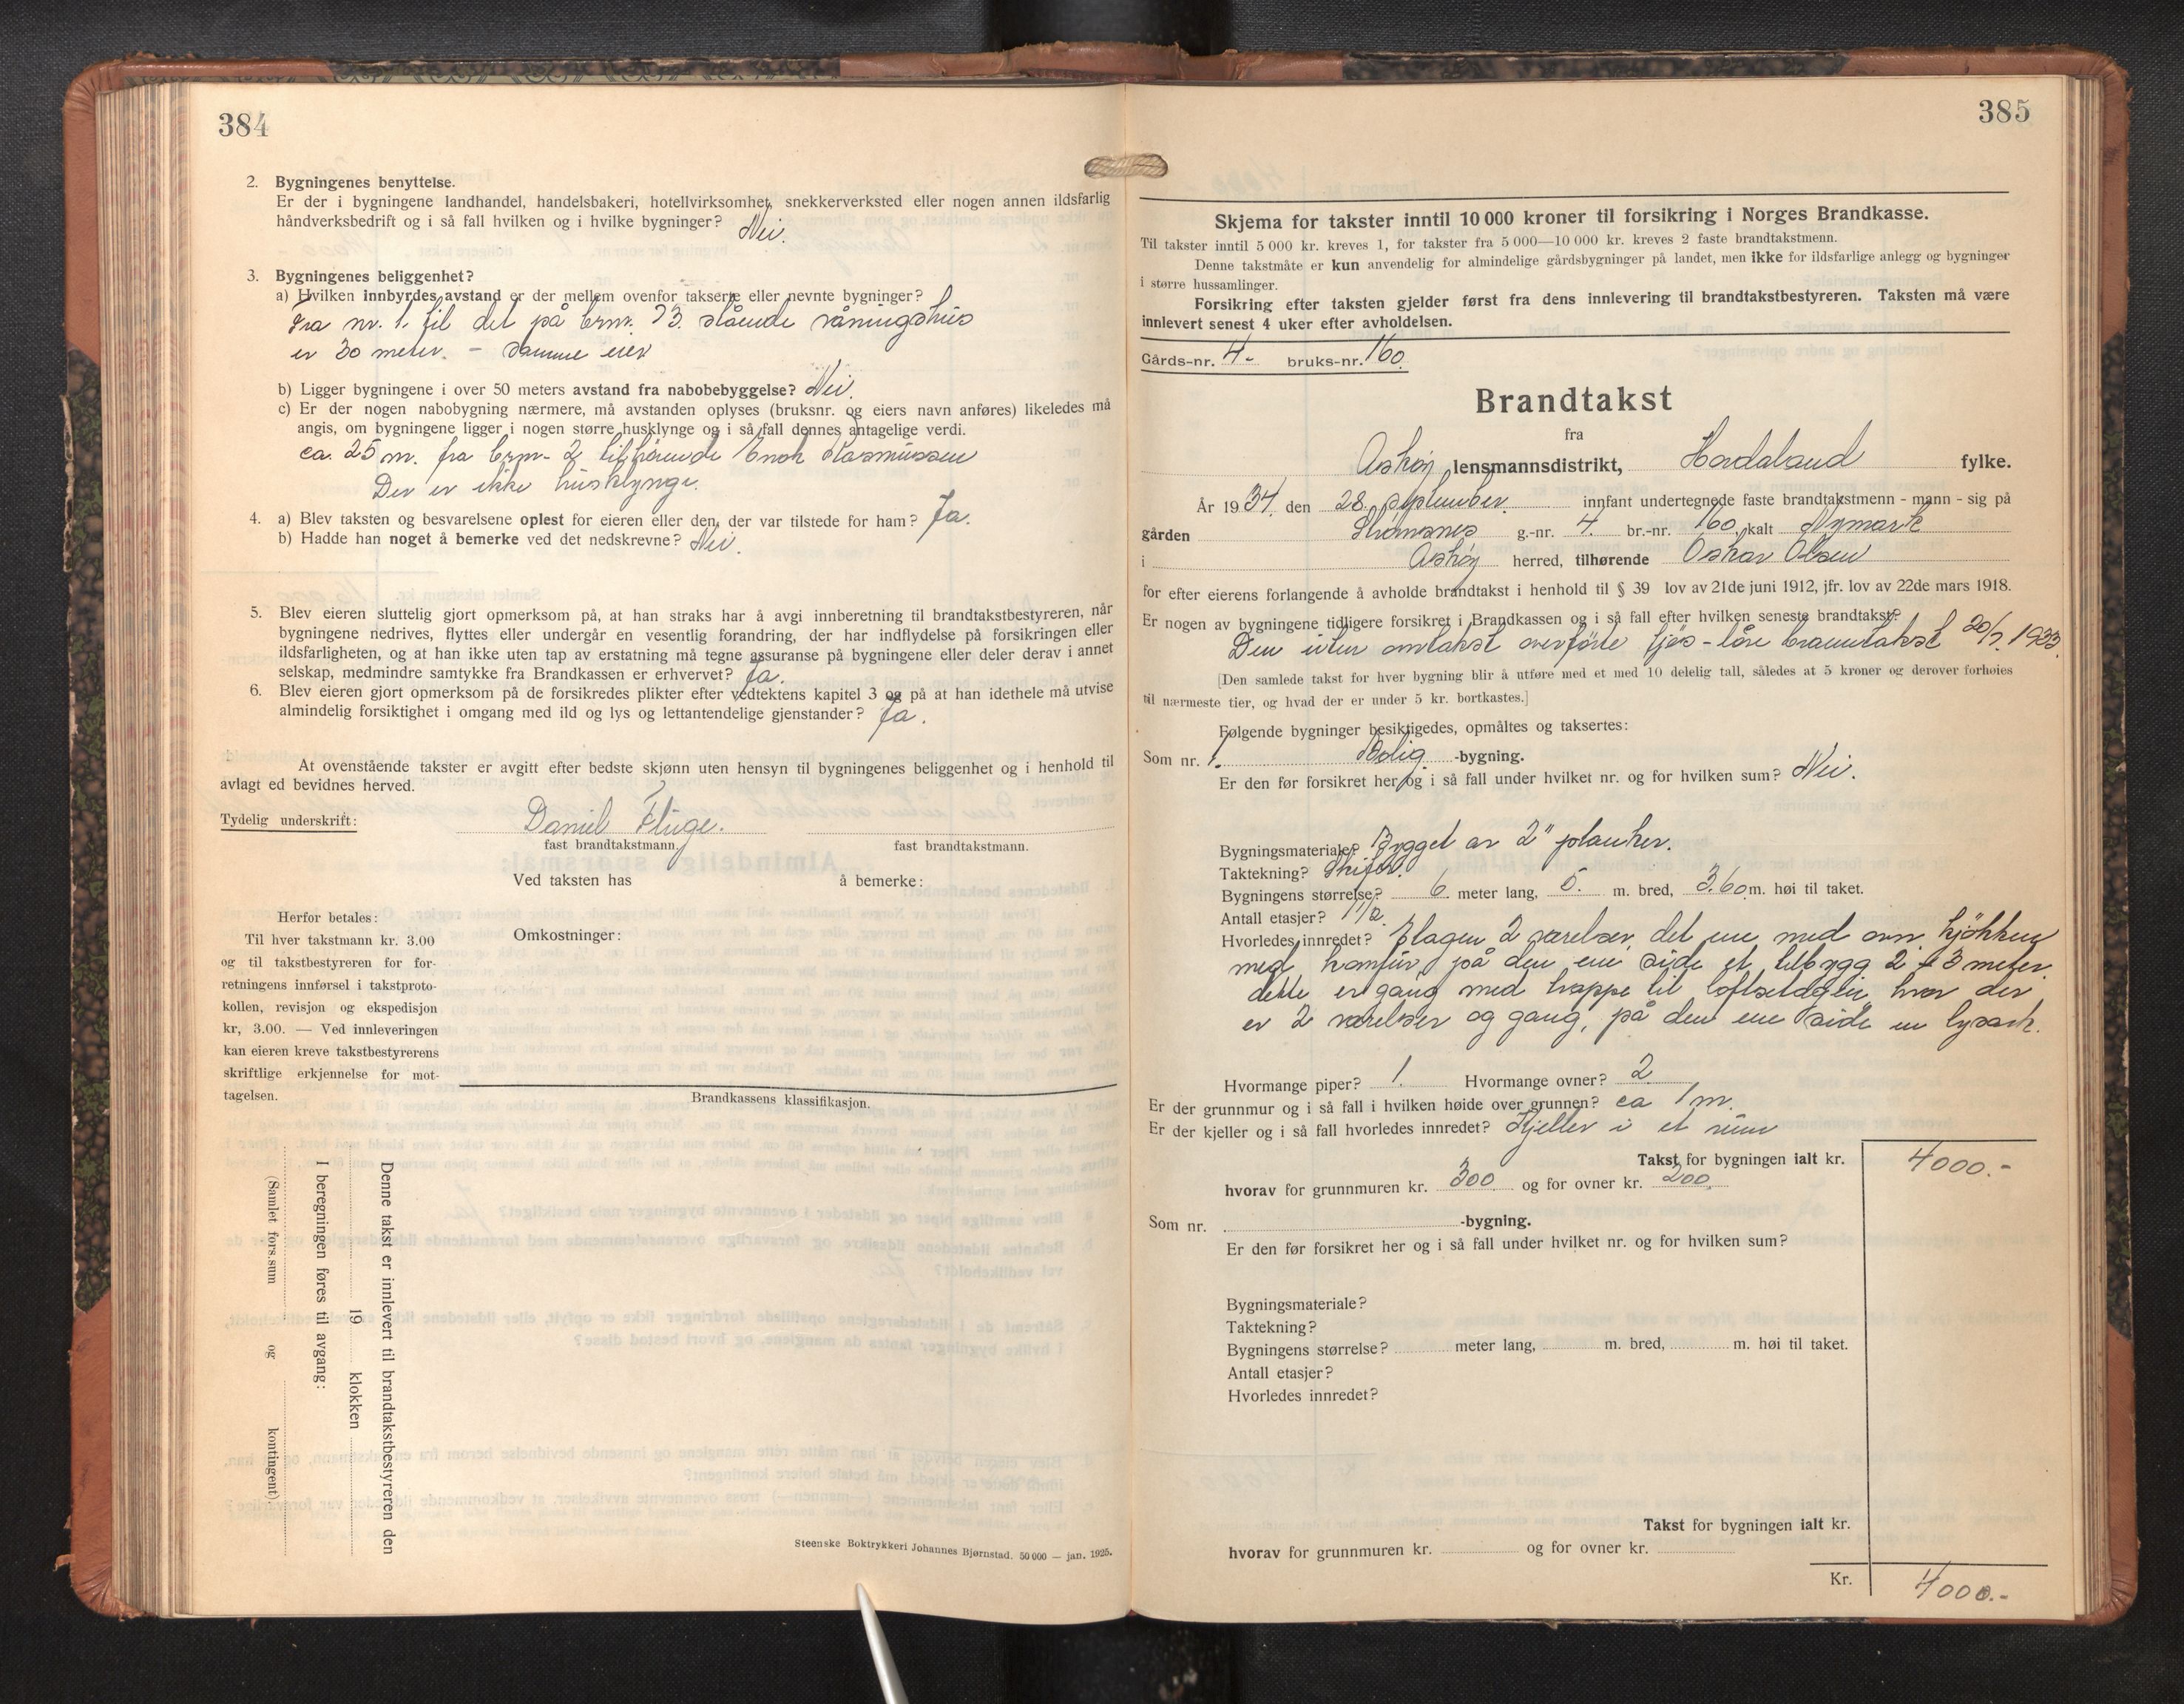 384
2. Bygningenes benyttelse.
Er der i bygningene landhandel, handelsbakeri, hotellvirksomhet, snekkerverksted eller nogen annen ildsfarlig
håndverksbedrift og i så fall hvilken og i hvilke bygninger? Nei.
3. Bygningenes beliggenhet?
a) Hvilken innbyrdes avstand er der mellem ovenfor takserte eller nevnte bygninger?
Fra nr. 1. til det på brnr. 73. stående våningshus
er 30 meter. - samme eier
b) Ligger bygningene i over 50 meters avstand fra nabobebyggelse? Nei.
c) Er der nogen nabobygning nærmere, må avstanden oplyses (bruksnr. og eiers navn anføres) likeledes må
angis, om bygningene ligger i nogen større husklynge og i så fall dennes antagelige verdi.
ca. 25 m. fra brnr. 2 tilhørende Enok Rasmussen
Der er ikke husklynge.
4. a) Blev taksten og besvarelsene oplest for eieren eller den, der var tilstede for ham? Ja.
b) Hadde han noget å bemerke ved det nedskrevne? Nei.
5. Blev eieren sluttelig gjort opmerksom på, at han straks har å avgi innberetning til brandtakstbestyreren, når
bygningene nedrives, flyttes eller undergår en vesentlig forandring, der har indflydelse på forsikringen eller
ildsfarligheten, og at han ikke uten tap av erstatning må tegne assuranse på bygningene eller deler derav i annet
selskap, medmindre samtykke fra Brandkassen er erhvervet? Ja.
6. Blev eieren gjort opmerksom på de forsikredes plikter efter vedtektens kapitel 3 og på at han idethele må utvise
almindelig forsiktighet i omgang med ild og lys og lettantendelige gjenstander? Ja.
At ovenstående takster er avgitt efter bedste skjønn uten hensyn til bygningenes beliggenhet og i henhold til
avlagt ed bevidnes herved.
Tydelig underskrift: Daniel Fluge.
fast brandtakstmann. fast brandtakstmann.
Ved taksten has å bemerke:
Herfor betales:
Til hver takstmann kr. 3.00
og til takstbestyreren for for-
retningens innførsel i takstproto-
kollen, revisjon og ekspedisjon
kr, 3.00. — Ved innleveringen
kan eieren kreve takstbestyrerens
skriftlige erkjennelse for mot-
tagelsen.
Omkostninger:
Brandkassens klassifikasjon.
Denne takst er innlevert til brandtakstbestyreren den
19 klokken
I beregningen føres til avgang:
(Samlet fors.sum og kontingent)
Steenske Boktrykkeri Johannes Bjørnstad. 50 000 — jan. 1925.
385
Skjema for takster inntil 10 000 kroner til forsikring i Norges Brandkasse.
Til takster inntil 5 000 kr. kreves 1, for takster fra 5 000—10 000 kr. kreves 2 faste brandtakstmenn.
Denne takstmåte er kun anvendelig for almindelige gårdsbygninger på landet, men ikke for ildsfarlige anlegg og bygninger
i større hussamlinger.
Forsikring efter taksten gjelder først fra dens innlevering til brandtakstbestyreren. Taksten må være
innlevert senest 4 uker efter avholdelsen.
Gårds-nr. 4- bruks-nr. 160.
Brandtakst
fra
Askøy lensmannsdistrikt, Hordaland fylke.
År 1934. den 28. september. innfant undertegnede faste brandtakstmenn - mann - sig på
gården Strømsnes g.-nr. 4. br.-nr. 160. kalt Nymark
i Askøy herred, tilhørende Oskar Olsen
for efter eierens forlangende å avholde brandtakst i henhold til § 39 lov av 21de juni 1912, jfr. lov av 22de mars 1918.
Er nogen av bygningene tidligere forsikret i Brandkassen og i så fall efter hvilken seneste brandtakst?
Den uten omtakst overførte fjøs-løe branntakst 20/7. 1933.
[Den samlede takst for hver bygning blir å utføre med et med 10 delelig tall, således at 5 kroner og derover forhøies
til nærmeste tier, og hvad der er under 5 kr. bortkastes.]
Følgende bygninger besiktigedes, opmåltes og taksertes:
Som nr. 1. Bolig -bygning.
Er den før forsikret her og i så fall under hvilket nr. og for hvilken sum? Nei.
Bygningsmateriale? Bygget av 2" planker.
Taktekning? Skifer.
Bygningens størrelse? 6 meter lang, 5. m. bred, 3.60 m. høi til taket.
Antall etasjer? 1 1/2.
Hvorledes innredet? Etagen 2 værelser, det ene med ovn, kjøkken
med komfur, på den ene side et tilbygg 2 × 3 meter.
dette er gang med trappe til loftsetagen, hvor der
er 2 værelser og gang, på den ene side en lysark.
Hvormange piper? 1. Hvormange ovner? 2.
Er der grunnmur og i så fall i hvilken høide over grunnen? ca 1 m.
Er der kjeller og i så fall hvorledes innredet? Kjeller i et rum
Takst for bygningen ialt kr. 4000.-
hvorav for grunnmuren kr. 300 og for ovner kr. 200.
Som nr. -bygning.
Er den før forsikret her og i så fall under hvilket nr. og for hvilken sum?
Bygningsmateriale?
Taktekning?
Bygningens størrelse? meter lang, m. bred, m. høi til taket.
Antall etasjer?
Hvorledes innredet?
Takst for bygningen ialt kr.
hvorav for grunnmuren kr. og for ovner kr.
Kr. 4000.-